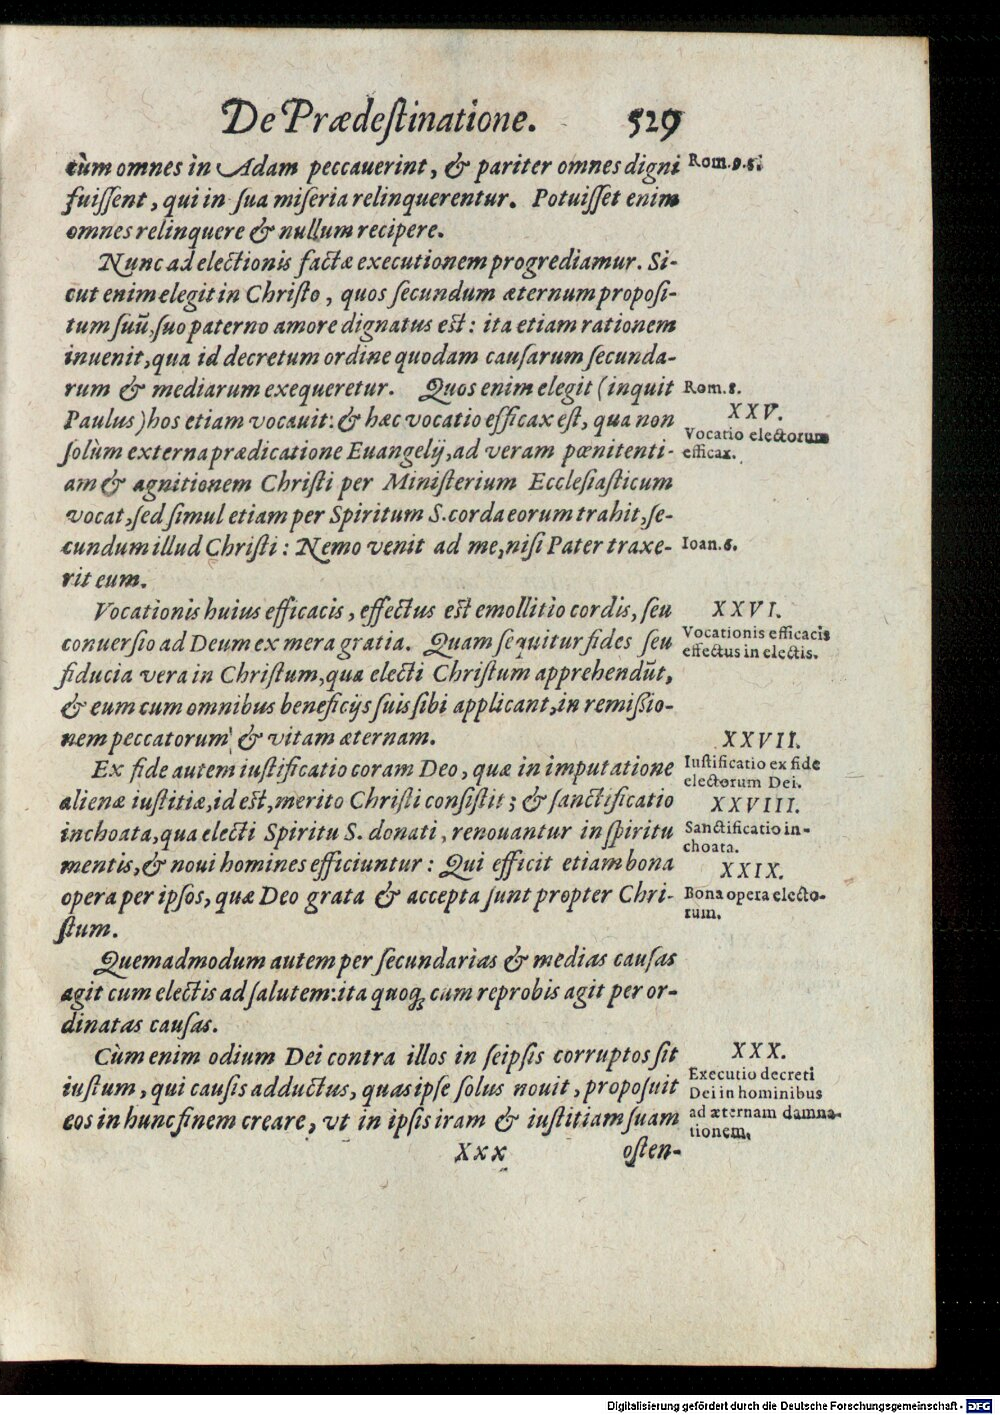 De Prædeſtinatione. 529
cùm omnes in Adam peccauerint, & pariter omnes digni
Rom. 9.5.
fuiſſent, qui in ſua miſeria relinquerentur. Potuiſſet enim
omnes relinquere & nullum recipere.
Nunc ad electionis factæ executionem progrediamur. Si-
cut enim elegit in Chriſto, quos ſecundum æternum propoſi-
tum ſuũ, ſuo paterno amore dignatus eſt: ita etiam rationem
inuenit, qua id decretum ordine quodam cauſarum ſecunda-
rum & mediarum exequeretur. Quos enim elegit (inquit
Rom. 8.
Paulus) hos etiam vocauit: & hæc vocatio efficax eſt, qua non
XXV.
Vocatio electorum
efficax.
ſolùm externa prædicatione Euangelij, ad veram pœnitenti-
am & agnitionem Chriſti per Miniſterium Eccleſiaſticum
vocat, ſed ſimul etiam per Spiritum S. corda eorum trahit, ſe-
cundum illud Chriſti: Nemo venit ad me, niſi Pater traxe-
Ioan. 6.
rit eum.
Vocationis huius efficacis, effectus eſt emollitio cordis, ſeu
XXVI.
Vocationis efficacis
effectus in electis.
conuerſio ad Deum ex mera gratia. Quam ſequitur fides ſeu
fiducia vera in Chriſtum, qua electi Chriſtum apprehendũt,
& eum cum omnibus beneficijs ſuis ſibi applicant, in remiſſio-
nem peccatorum & vitam æternam.
XXVII.
Iuſtificatio ex fide
electorum Dei.
Ex fide autem iuſtificatio coram Deo, quæ in imputatione
alienæ iuſtitiæ, id eſt, merito Chriſti conſiſtit; & ſanctificatio
XXVIII.
Sanctificatio in-
choata.
inchoata, qua electi Spiritu S. donati, renouantur in ſpiritu
mentis, & noui homines efficiuntur: Qui efficit etiam bona
XXIX.
Bona opera electo-
rum.
opera per ipſos, quæ Deo grata & accepta ſunt propter Chri-
ſtum.
Quemadmodum autem per ſecundarias & medias cauſas
agit cum electis ad ſalutem: ita quoq; cum reprobis agit per or-
dinatas cauſas.
Cùm enim odium Dei contra illos in ſeipſis corruptos ſit
XXX.
Executio decreti
Dei in hominibus
ad æternam damna-
tionem.
iuſtum, qui cauſis adductus, quas ipſe ſolus nouit, propoſuit
eos in hunc finem creare, vt in ipſis iram & iuſtitiam ſuam
Xxx oſten-
Digitalisierung gefördert durch die Deutsche Forschungsgemeinschaft - DFG